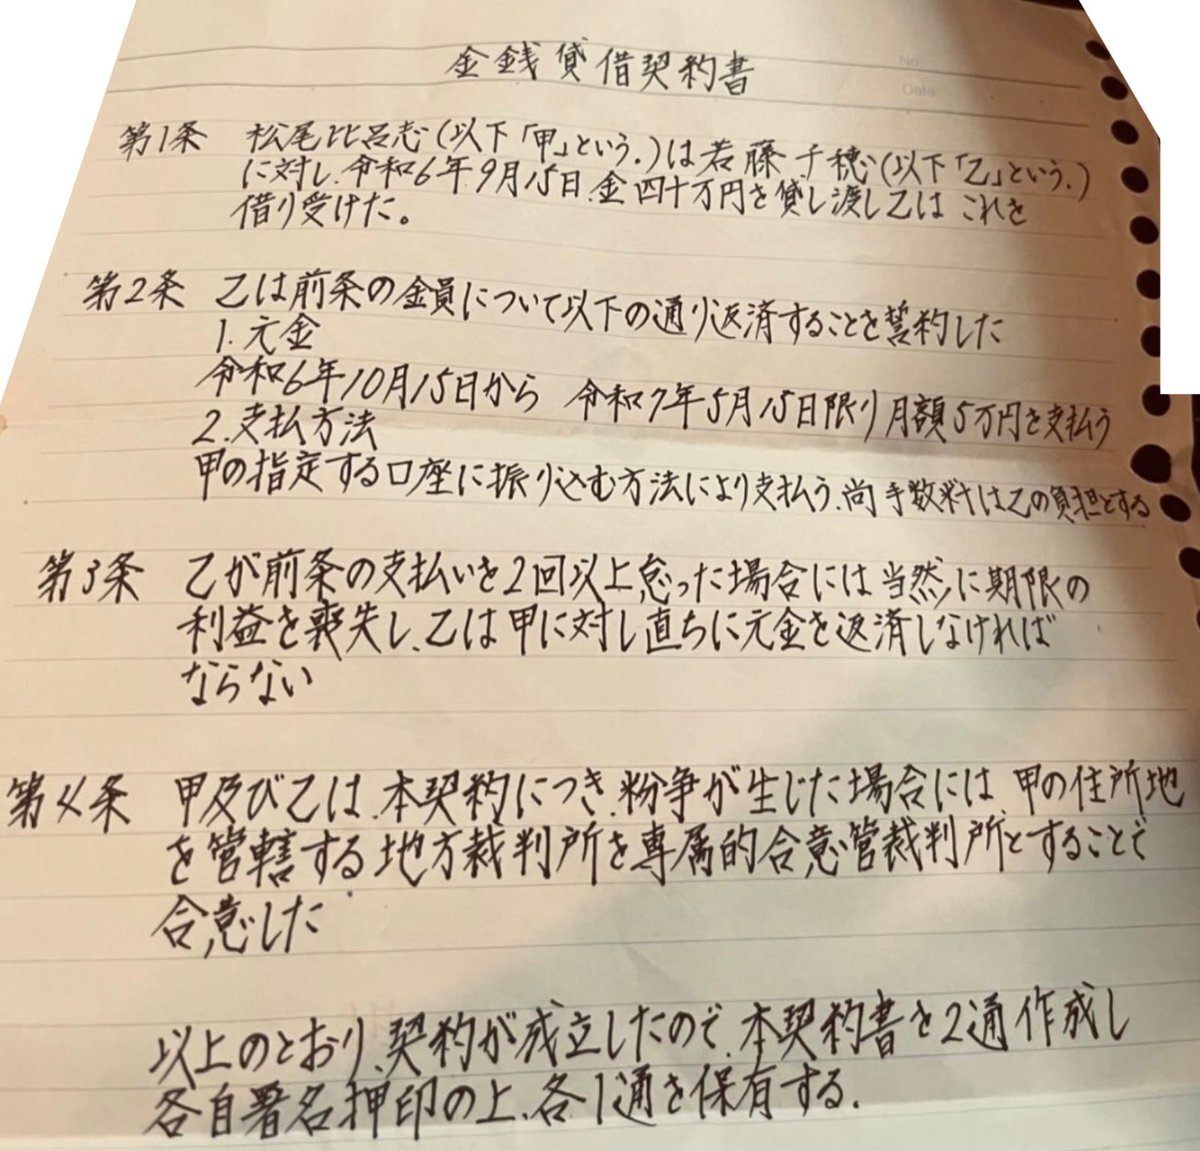 No.
Date
金銭貸借契約書
第1条 松尾比呂志(以下「甲」という.)は若藤千穂(以下「乙」という.)
に対し、令和6年9月15日、金四十万円を貸し渡し乙はこれを
借り受けた。
第2条 乙は前条の金員について以下の通り返済することを誓約した
1.元金
令和6年10月15日から 令和7年5月15日限り月額5万円を支払う
2.支払方法
甲の指定する口座に振り込む方法により支払う、尚手数料は乙の負担とする
第3条 乙が前条の支払いを2回以上怠った場合には当然に期限の
利益を喪失し、乙は甲に対し直ちに元金を返済しなければ
ならない
第4条 甲及び乙は、本契約につき、紛争が生じた場合には、甲の住所地
を管轄する地方裁判所を専属的合意管裁判所とすることで
合意した
以上のとおり、契約が成立したので、本契約書を2通作成し
各自署名押印の上、各1通を保有する.